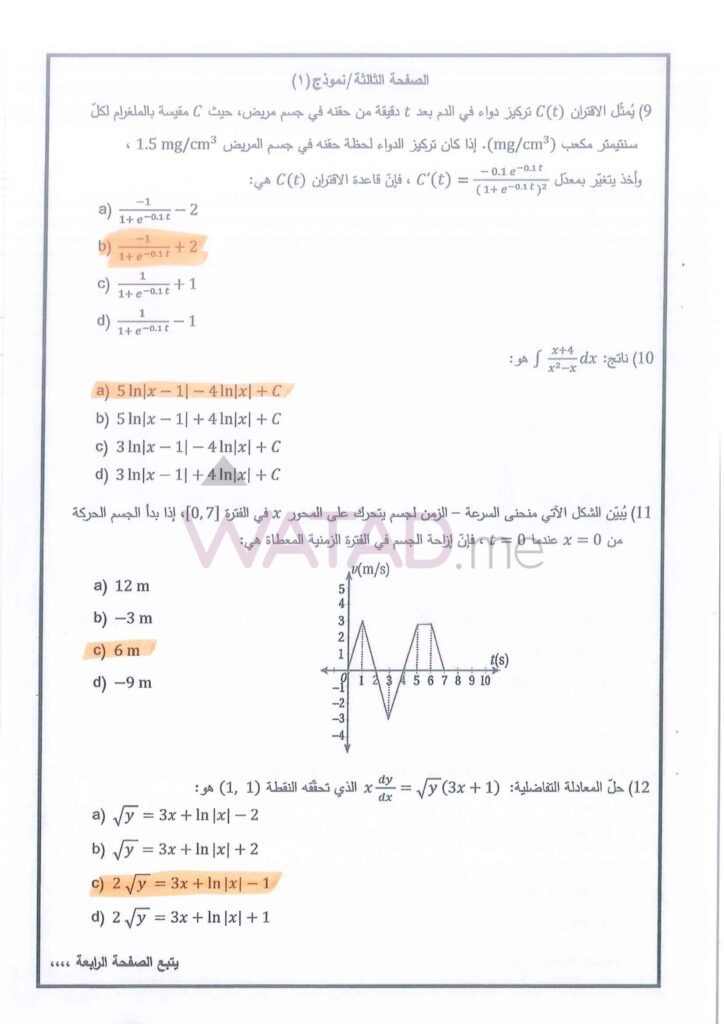 الصفحة الثالثة/نموذج(١)
9) يُمثّل الاقتران C(t) تركيز دواء في الدم بعد t دقيقة من حقنه في جسم مريض، حيث C مقيسة بالملغرام لكلّ
سنتيمتر مكعب (mg/cm³). إذا كان تركيز الدواء لحظة حقنه في جسم المريض 1.5 mg/cm³ ،
وأخذ يتغيّر بمعدّل C′(t) = −0.1 e^{−0.1 t} / (1+ e^{−0.1 t})² ، فإنّ قاعدة الاقتران C(t) هي:
a) −1/(1+ e^{−0.1 t}) − 2
b) −1/(1+ e^{−0.1 t}) + 2
c) 1/(1+ e^{−0.1 t}) + 1
d) 1/(1+ e^{−0.1 t}) − 1
10) ناتج: ∫ (x+4)/(x²−x) dx هو:
a) 5 ln|x − 1| − 4 ln|x| + C
b) 5 ln|x − 1| + 4 ln|x| + C
c) 3 ln|x − 1| − 4 ln|x| + C
d) 3 ln|x − 1| + 4 ln|x| + C
WATAD.me
11) يُبيّن الشكل الآتي منحنى السرعة – الزمن لجسم يتحرك على المحور x في الفترة [0, 7]، إذا بدأ الجسم الحركة
من x = 0 عندما t = 0 ، فإنّ إزاحة الجسم في الفترة الزمنية المعطاة هي:
a) 12 m
b) −3 m
c) 6 m
d) −9 m
v(m/s)
5
4
3
2
1
0 1 2 3 4 5 6 7 8 9 10 t(s)
−1
−2
−3
−4
12) حلّ المعادلة التفاضلية: x dy/dx = √y (3x + 1) الذي تحقّقه النقطة (1, 1) هو:
a) √y = 3x + ln |x| − 2
b) √y = 3x + ln |x| + 2
c) 2 √y = 3x + ln |x| − 1
d) 2 √y = 3x + ln |x| + 1
يتبع الصفحة الرابعة ،،،،